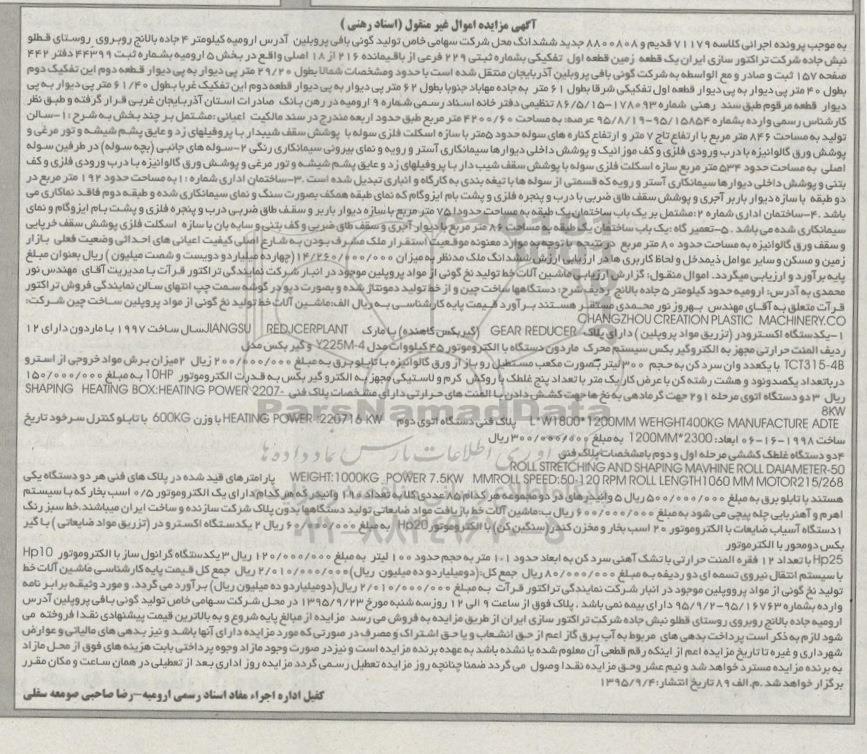 آگهی مزایده اموال غیر منقول (اسناد رهنی )
به موجب پرونده اجرائی کلاسه ۷۱۱۷۹ قدیم و ۸۸۰۰۸۰۸ جدید ششدانگ محل شرکت سهامی خاص تولید گونی بافی پروبلین آدرس ارومیه کیلومتر ۴ جاده بالانج روبروی روستای قطلو
نبش جاده شرکت تراکتور سازی ایران یک قطعه زمین قطعه اول تفکیکی بشماره ثبتی ۲۲۹ فرعی از باقیمانده ۲۱۶ از ۱۸ اصلی واقع در بخش ۵ ارومیه بشماره ثبت ۴۴۳۹۹ دفتر ۴۴۲
صفحه ۱۵۷ ثبت و صادر و مع الواسطه به شرکت گونی بافی پروبلین آذربایجان منتقل شده است با حدود ومشخصات شمالا بطول ۲۹/۲۰ متر پی دیوار به پی دیوار قطعه دوم این تفکیک دوم
بطول ۴۰ متر پی دیوار به پی دیوار قطعه اول تفکیکی شرقا بطول ۶۱ متر به جاده مهاباد جنوبا بطول ۶۲ متر پی دیوار به پی دیوار قطعه دوم این تفکیک غربا بطول ۶۱/۴۰ متر پی دیوار به پی
دیوار قطعه مرقوم طبق سند رهنی شماره ۱۷۸۰۹۳-۸۶/۵/۱۵ تنظیمی دفتر خانه اسناد رسمی شماره ۹ ارومیه در رهن بانک صادرات استان آذربایجان غربی قرار گرفته و طبق نظر
کارشناس رسمی وارده بشماره ۱۵۸۵۴/۹۵-۹۵/۸/۱۹ عرصه: به مساحت ۴۲۰۰/۶۰ متر مربع طبق حدود اربعه مندرج در سند مالکیت اعیانی :مشتمل بر چند بخش به شرح :۱-سالن
تولید به مساحت ۸۴۶ متر مربع با ارتفاع تاج ۷ متر و ارتفاع کناره های سوله حدود ۵متر با سازه اسکلت فلزی سوله با پوشش سقف شیبدار با پروفیلهای زد و عایق پشم شیشه و تور مرغی و
پوشش ورق گالوانیزه با درب ورودی فلزی و کف موزائیک و پوشش داخلی دیوار ها سیمانکاری آستر و رویه و نمای بیرونی سیمانکاری رنگی ۲-سوله های جانبی (بچه سوله) در طرفین سوله
اصلی به مساحت حدود ۵۳۴ متر مربع سازه اسکلت فلزی سوله با پوشش سقف شیب دار با پروفیلهای زد و عایق پشم شیشه و تور مرغی و پوشش ورق گالوانیزه با درب ورودی فلزی و کف
بتنی و پوشش داخلی دیوار ها سیمانکاری آستر و رویه که قسمتی از سوله ها با تیغه بندی به کارگاه و انباری تبدیل شده است .۳-ساختمان اداری شماره ۱:به مساحت حدود ۱۹۲ متر مربع در
دو طبقه با سازه دیوار باربر آجری و پوشش سقف طاق ضربی با درب و پنجره فلزی و پشت بام ایزوگام که نمای طبقه همکف بصورت سنگ و نمای سیمانکاری شده و طبقه دوم فاقد نماکاری می
باشد .۴-ساختمان اداری شماره ۲:مشتمل بر یک باب ساختمان یک طبقه به مساحت حدود ۷۵ متر مربع با سازه دیوار باربر و سقف طاق ضربی درب و پنجره فلزی و پشت بام ایزوگام و نمای
سیمانکاری شده می باشد .۵-تعمیر گاه :یک باب ساختمان یک طبقه به مساحت ۸۶ متر مربع با دیوار آجری و سقف طاق ضربی و کف بتنی و سایه بان با سازه اسکلت فلزی پوشش سقف خرپایی
و سقف ورق گالوانیزه به مساحت حدود ۸۰ متر مربع در نتیجه با توجه به موارد معنونه موقعیت استقرار ملک مشرف بودن به شارع اصلی کیفیت اعیانی های احداثی وضعیت فعلی بازار
زمین و مسکن و سایر عوامل ذیمدخل و لحاظ کاربری ها در ارزیابی ارزش ششدانگ ملک مدنظر به میزان ۱۴/۲۶۰/۰۰۰/۰۰۰ (چهارده میلیارد و دویست و شصت میلیون ) ریال بعنوان مبلغ
پایه برآورد و ارزیابی میگردد. اموال منقول: گزارش ارزیابی ماشین آلات خط تولید نخ گونی از مواد پروپلین موجود در انبار شرکت نمایندگی تراکتور قرآت با مدیریت آقای مهندس نور
محمدی به آدرس: ارومیه حدود کیلومتر ۵ جاده بالانج ردیف شرح: دستگاهها ساخت چین و از خط تولید دمونتاژ شده و بصورت دپو در گوشه سمت چپ انتهای سالن نمایندگی فروش تراکتور
قرآت متعلق به آقای مهندس بهروز نور محمدی مستقر هستند برآورد قیمت پایه کارشناسی به ریال الف:ماشین آلات خط تولید نخ گونی از مواد پروپلین ساخت چین شرکت:
CHANGZHOU CREATION PLASTIC MACHINERY.CO
۱-یکدستگاه اکسترودر (تزریق مواد پروپلین ) دارای پلاک GEAR REDUCER (گیربکس کاهنده) با مارک JIANGSU REDJCERPLANTسال ساخت ۱۹۹۷ با ماردون دارای ۱۲
ردیف المنت حرارتی مجهز به الکتروگیر بکس سیستم محرک ماردون دستگاه با الکتروموتور ۴۵ کیلووات مدل Y225M-4 و گیر بکس مدل
TCT315-4B با یکعدد وان سرد کن به حجم ۳۰۰ لیتر بصورت مکعب مستطیل رو باز از ورق گالوانیزه با تابلو برق به مبلغ ۲۰۰/۰۰۰/۰۰۰ ریال ۲میزان برش مواد خروجی از استرو
دربا تعداد یکصدونود و هشت رشته کن با عرض کار یک متر با تعداد پنج غلطک با روکش کرم و لاستیکی مجهز به الکترو گیر بکس به قدرت الکتروموتور 10HP به مبلغ ۱۵۰/۰۰۰/۰۰۰
ریال ۳ دو دستگاه اتوی مرحله ۱و۲ جهت گرمادهی به نخ ها جهت کشش دادن با المنت های حرارتی دارای مشخصات پلاک فنی SHAPING HEATING BOX:HEATING POWER 2207-
8KW
L*W1800*1200MM WEHGHT400KG MANUFACTURE ADTE پلاک فنی دستگاه اتوی دوم HEATING POWER :220716 KW با وزن 600KG با تابلو کنترل سرخود تاریخ
ساخت ۱۹۹۸-۱۶-۰۶ ابعاد: 2300*1200MM به مبلغ ۳۰۰/۰۰۰/۰۰۰ ریال
۴دو دستگاه غلطک کششی مرحله اول و دوم بامشخصات پلاک فنی
ROLL STRETCHING AND SHAPING MAVHINE ROLL DAIAMETER-50
WEIGHT:1000KG .POWER 7.5KW MMROLL SPEED:50-120 RPM ROLL LENGTH1060 MM MOTOR215/268 پارامترهای قید شده در پلاک های فنی هر دو دستگاه یکی
هستند با تابلو برق به مبلغ ۵۰۰/۰۰۰/۰۰۰ ریال ۵ وانیدرهای در دو مجموعه هر کدام ۸۵ عددی کلا به تعداد ۱۷۰ وانیدر که هر کدام دارای یک الکتروموتور ۰/۵ اسب بخار که با سیستم
اهرم و آهنربایی چله پیچی می شود به مبلغ ۶۰۰/۰۰۰/۰۰۰ ریال ب:ماشین آلات خط بازیافت مواد ضایعاتی تولید دستگاهها بدون پلاک شرکت سازنده و ساخت ایران میباشند.خط سبز رنگ
۱دستگاه آسیاب ضایعات با الکتروموتور ۲۰ اسب بخار و مخزن کندر(سنگین کن) با الکتروموتور Hp20 به مبلغ ۶۰/۰۰۰/۰۰۰ ریال ۲ یکدستگاه اکسترو در (تزریق مواد ضایعاتی ) با گیر
بکس دومحور با الکترموتور
Hp25 با تعداد ۱۲ فقره المنت حرارتی با تشک آهنی سرد کن به ابعاد حدود ۱.۱ متر به حجم حدود ۱۰۰ لیتر به مبلغ ۱۲۰/۰۰۰/۰۰۰ ریال ۳ یکدستگاه گرانول ساز با الکتروموتور Hp10
با سیستم انتقال نیروی تسمه ای دو ردیفه به مبلغ ۸۰/۰۰۰/۰۰۰ ریال جمع کل:(دومیلیارد و ده میلیون ریال) ۲/۰۱۰/۰۰۰/۰۰۰ ریال جمع کل قیمت پایه کارشناسی ماشین آلات خط
تولید نخ گونی از مواد پروپلین موجود در انبار شرکت نمایندگی تراکتور قرآت به مبلغ ۲/۰۱۰/۰۰۰/۰۰۰ ریال(دومیلیارد و ده میلیون ریال) برآورد می گردد. و مورد وثیقه برابر نامه
وارده بشماره ۱۶۷۶۳/۹۵-۹۵/۹/۲ دارای بیمه نمی باشد . پلاک فوق از ساعت ۹ الی ۱۲ روز سه شنبه مورخ ۱۳۹۵/۹/۲۳ در محل شرکت سهامی خاص تولید گونی بافی پروپلین آدرس
ارومیه جاده بالانج روبروی روستای قطلو نبش جاده شرکت تراکتور سازی ایران از طریق مزایده به فروش می رسد مزایده از مبالغ پایه شروع و به بالاترین قیمت پیشنهادی نقدا فروخته می
شود لازم به ذکر است پرداخت بدهی های مربوط به آب برق گاز اعم از حق انشعاب و یا حق اشتراک و مصرف در صورتی که مورد مزایده دارای آنها باشد و نیز بدهی های مالیاتی و عوارض
شهرداری و غیره تا تاریخ مزایده اعم از اینکه رقم قطعی آن معلوم شده یا نشده باشد به عهده برنده مزایده است و نیز در صورت وجود مازاد وجوه پرداختی بابت هزینه های فوق از محل مازاد
به برنده مزایده مسترد خواهد شد و نیم عشر وحق مزایده نقدا وصول می گردد ضمنا چنانچه روز مزایده تعطیل رسمی گردد مزایده روز اداری بعد از تعطیلی در همان ساعت و مکان مقرر
برگزار خواهد شد .م.الف ۸۹ تاریخ انتشار:۱۳۹۵/۹/۴
کفیل اداره اجراء مفاد اسناد رسمی ارومیه-رضا صاحبی صومعه سفلی